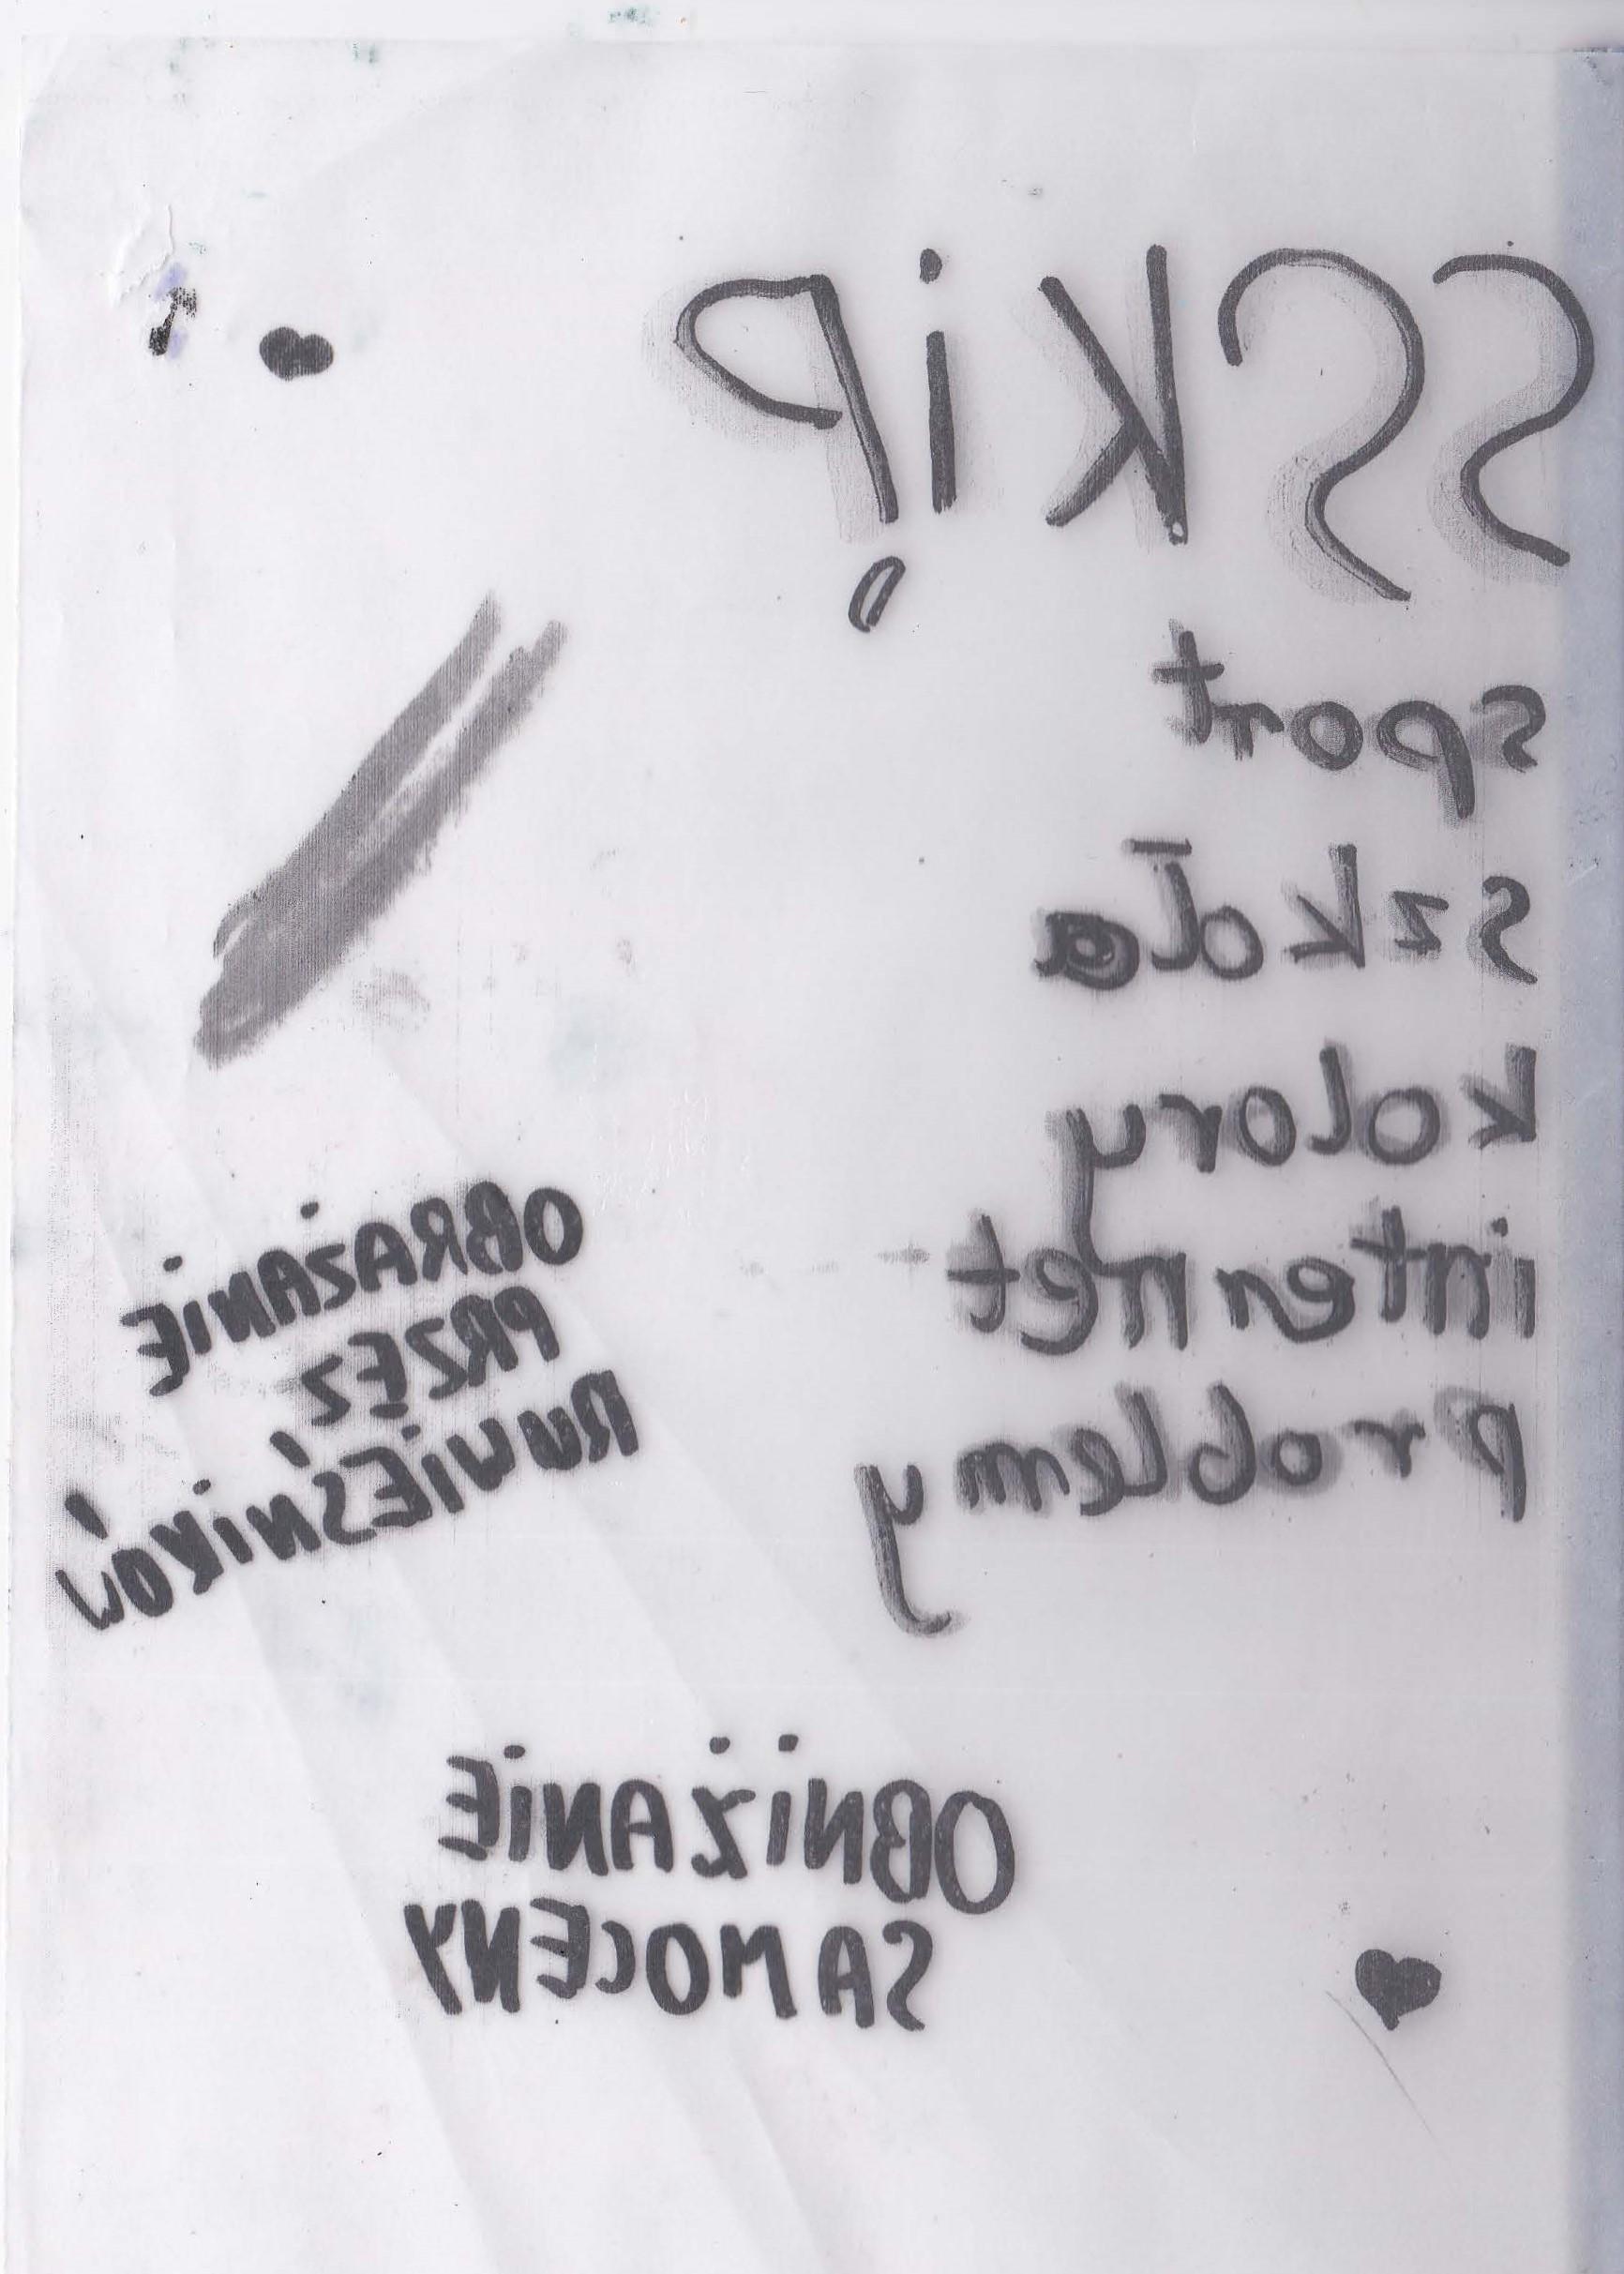 SSKiP
sport
szkoła
kolory
internet
problemy
OBRAŻANiE
PRZEZ
RUWIEŚNiKÓW
OBNiŻANiE
SAMOCENY